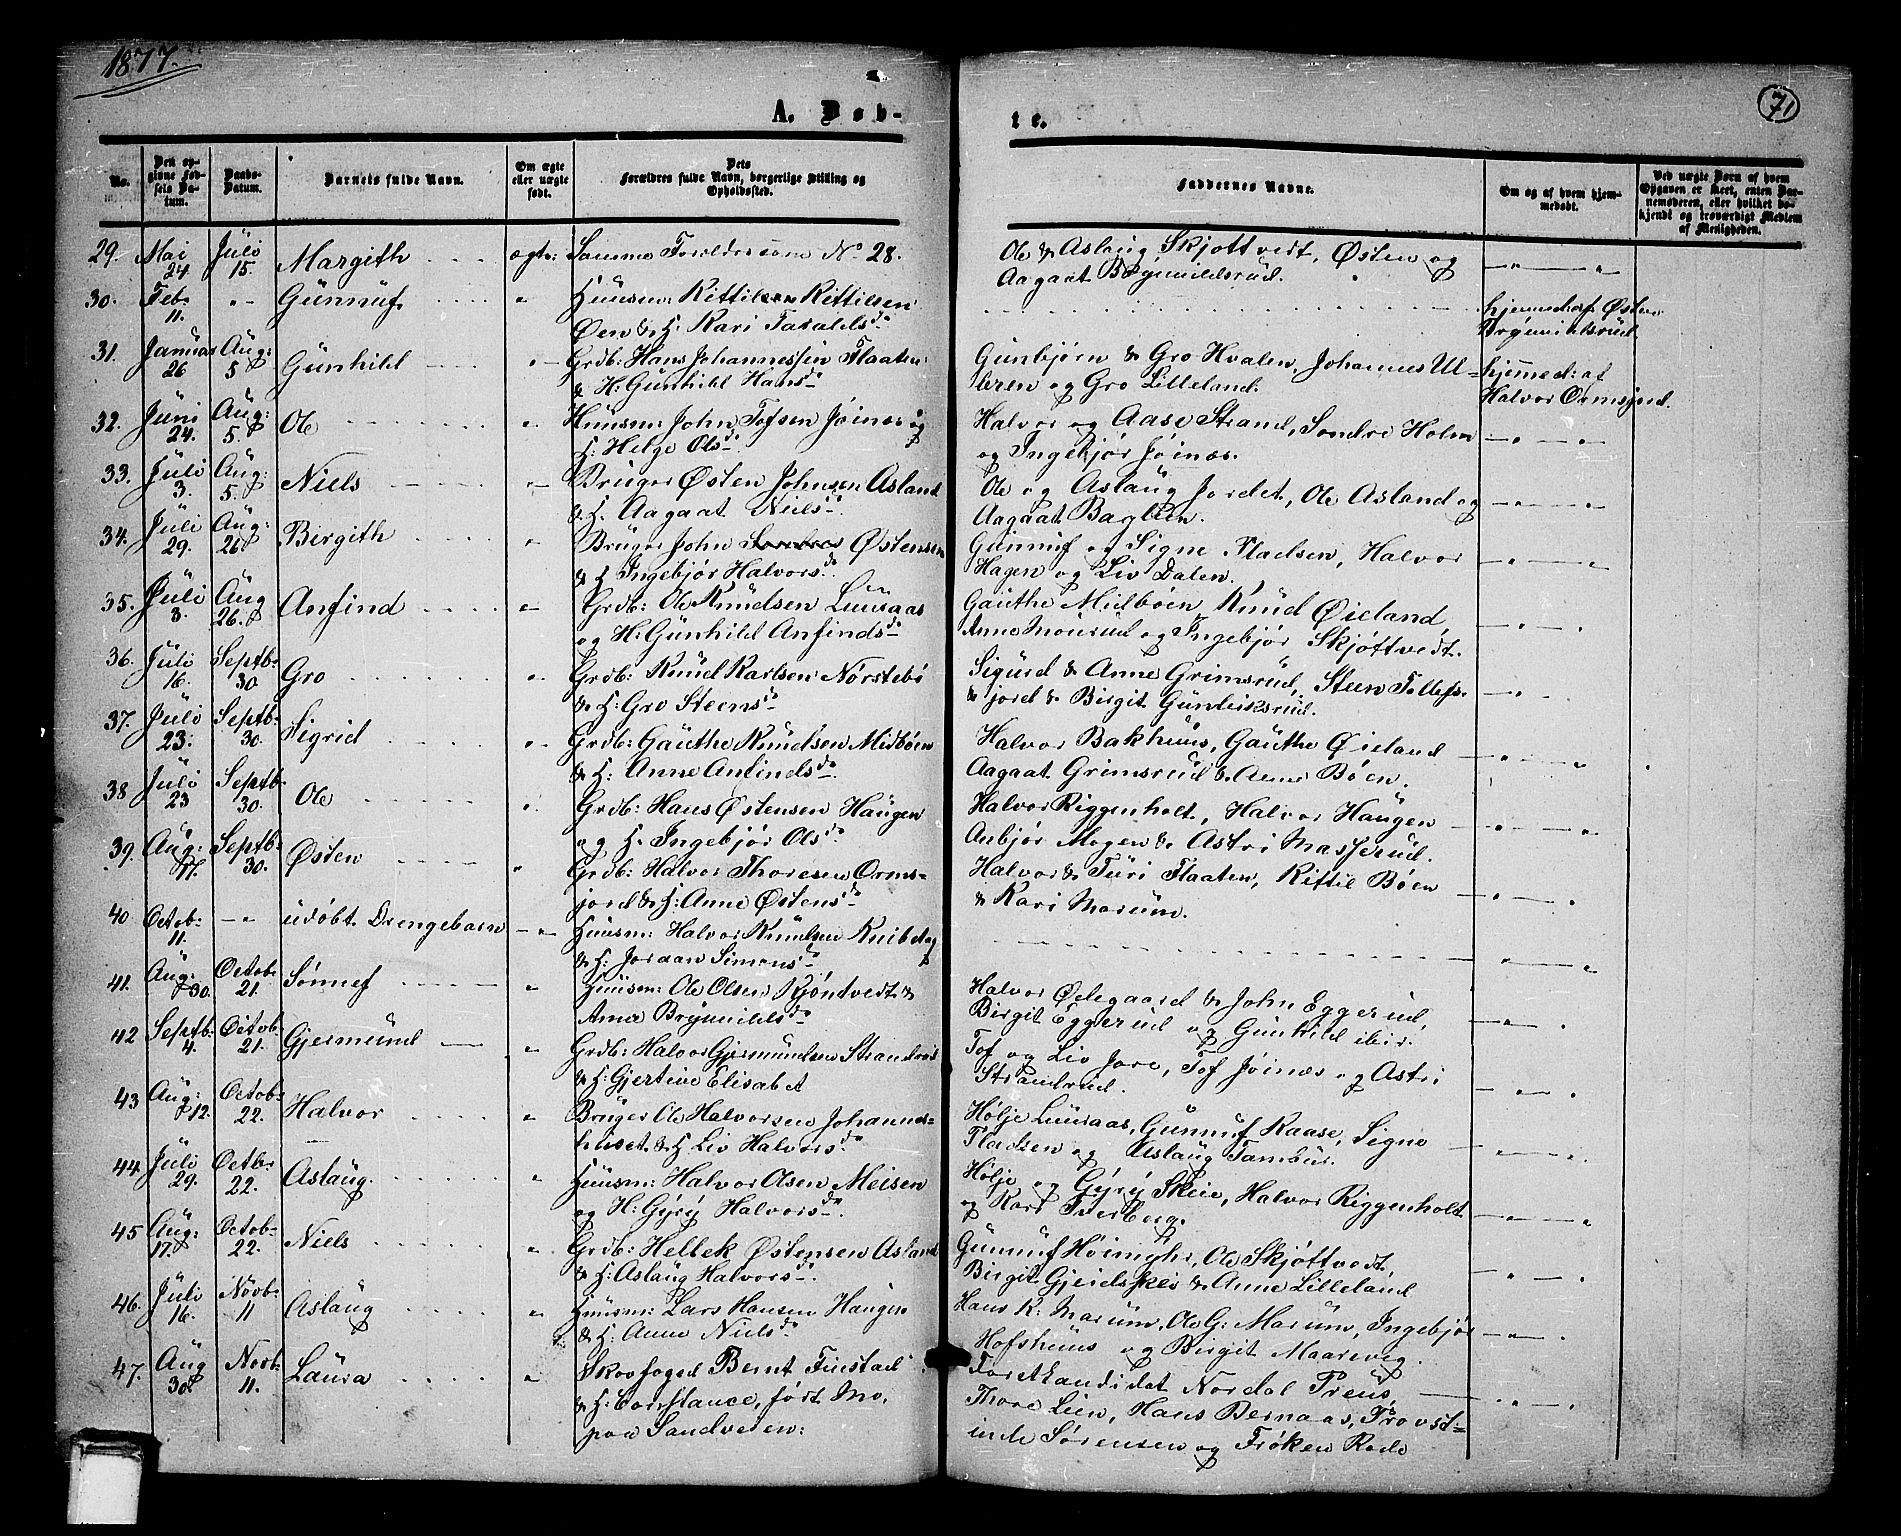 1877.
71
A. Døb-
te.
No.
Den opgivne Fødsels Datum.
Daabs-Datum.
Barnets fulde Navn.
Om ægte eller uægte født.
Dets Forældres fulde Navn, borgerlige Stilling og Opholdssted.
Faddernes Navne.
Om og af hvem hjemmedøbt.
Ved uægte Børn af hvem Opgaven er skeet, enten Barnemoderen, eller hvilket bekjendt og troværdigt Medlem af Menigheden.
29. Mai 24 Juli 15 Margith ægte: Samme Forældre som No 28.
Ole & Aslaug Skjøttvedt, Østen og
Aagaat Brynuildsrud.
30. Feb. 11. Günnuf Huusm: Kittilsen Kittilsen
Øen & H. Kari Taralds do
hjemmed: af Østen
Brynuildsrud
31. Januar 26 Aug: 5 Günhild Grdb: Hans Johannessen Flaaten
& H: Günhild Hans do
Gunbjørn & Gro Hvalen, Johannes Ul-
leren og Gro Lilleland.
hjemmed: af
Halvor Ormsjord.
32. Juni 24. Aug: 5. Ole Huusm: John Tofsen Jøinæs og
H: Helge Ols do
Halvor og Aase Strand, Søndre Holm
og Ingebjør Jøinæs.
33. Juli 3. Aug: 5. Niels Bruger Østen Johnsen Asland
& H. Aagaat Niels do
Ole og Aslaug Jordet, Ole Asland og
Aagaat Bagleen.
34. Juli 29. Aug: 26 Birgith Bruger John Østensen
& H Ingebjør Halvors do
Gunnuf og Signe Fladsen, Halvor
Hagen og Liv Dalen.
35. Juli 3. Aug 26. Anfind Grdb: Ole Knudsen Luuraas
og H: Günhild Anfinds do
Gauthe Midbøen, Knud Øieland,
Anne Mourud og Ingebjør Skjøttvedt.
36. Juli 16. Septb: 30 Gro Grdb: Knud Karlsen Nørstebø
& H: Gro Steens do
Sigurd & Anne Grimsrud, Steen Tollefs-
jord & Birgit Gunleiksrud.
37. Juli 23. Septb: 30. Sigrid Grdb: Gauthe Knudsen Midbøen
& H: Anne Anfinds do
Halvor Bakhuus, Gauthe Øieland
Aagaat Grimsrud & Anne Bøen.
38 Juli 23 Septb. 30. Ole Grdb: Hans Østensen Haugen
og H. Ingebjør Ols do
Halvor Riggenholt, Halvor Haugen
Anbjør Mogen & Astri Masserud.
39. Aug: 17. Septb: 30. Østen Grdb: Halvor Thoresen Orms-
jord & H: Anne Østens do
Halvor & Turi Flaaten, Kittil Bøen
& Kari Marum.
40 Octob: 11. udøbt Drengebarn Huusm: Halvor Knudsen
& H: Joraan Simons do
41. Aug: 30. Octob: 21. Sønnef Huusm: Ole Olsen Skjøntvedt &
Anne Brynuilds do
Halvor Ødegaard & John Eggerud,
Birgit Eggerud og Gunhild ibir.
42 Septb: 4. Octob: 21. Gjermund Grdb: Halvor Gjermundsen Strandrud
& H: Gjertine Elisabet
Tof og Liv Jore, Tof Jøinæs og Astri
Strandrud.
43 Aug: 12. Octob: 22. Halvor Bruger Ole Halvorsen Johannes-
huset & H Liv Halvors do
Hølje Luuraas, Gunnuf Kaase, Signe
Fladsen og Aslaug Tambur.
44. Juli 29. Octb: 22. Aslaug. Huusm: Halvor Olsen Meisen
og H: Gyry Halvors do
Hølje og Gyry Skeie, Halvor Riggenholt
og Kari Tverberg.
45 Aug: 17. Octob: 22. Niels Grdb: Hellek Østensen Asland
& H: Aslaug Halvors do
Gunnuf, Ole Skjøttvedt,
Birgit & Anne Lilleland
46. Juli 16. Novb: 11 Aslaug Huusm: Lars Hansen Haugen
& H: Anne Niels do
Hans K: Marum, Ole G: Marum, Ingebjør
Hofshuus og Birgit Maarevig.
47. Aug 30. Novb: 11. Laura Skovfoged Bernt Finstad
& H: Constance, født Mo,
paa Sandveden:
Forstkandidat Nordal Preus,
Thore Lien, Hans Bernaas, Provst-
inde Sørensen og Frøken Rode